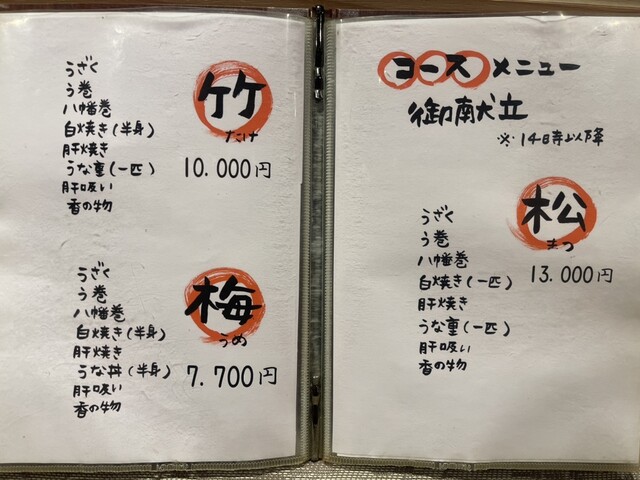 コースメニュー
御献立
※14時以降
松
まつ
13.000円
うざく
う巻
八幡巻
白焼き(一匹)
肝焼き
うな重(一匹)
肝吸い
香の物
竹
たけ
10.000円
うざく
う巻
八幡巻
白焼き(半身)
肝焼き
うな重(一匹)
肝吸い
香の物
梅
うめ
7.700円
うざく
う巻
八幡巻
白焼き(半身)
肝焼き
うな丼(半身)
肝吸い
香の物